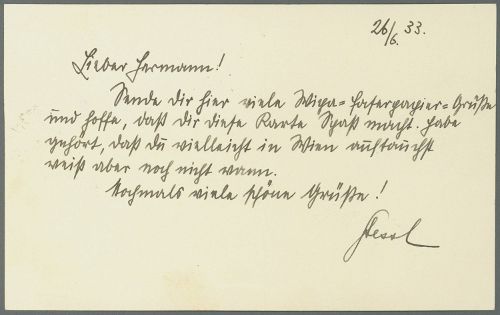 26/6. 33.
Lieber Hermann!
Sende dir hier viele Wipa=Faserpapier=Grüße
und hoffe, daß dir diese Karte Spaß macht. Habe
gehört, daß du vielleicht in Wien auftauchst
weiß aber noch nicht wann.
Nochmals viele schöne Grüße!